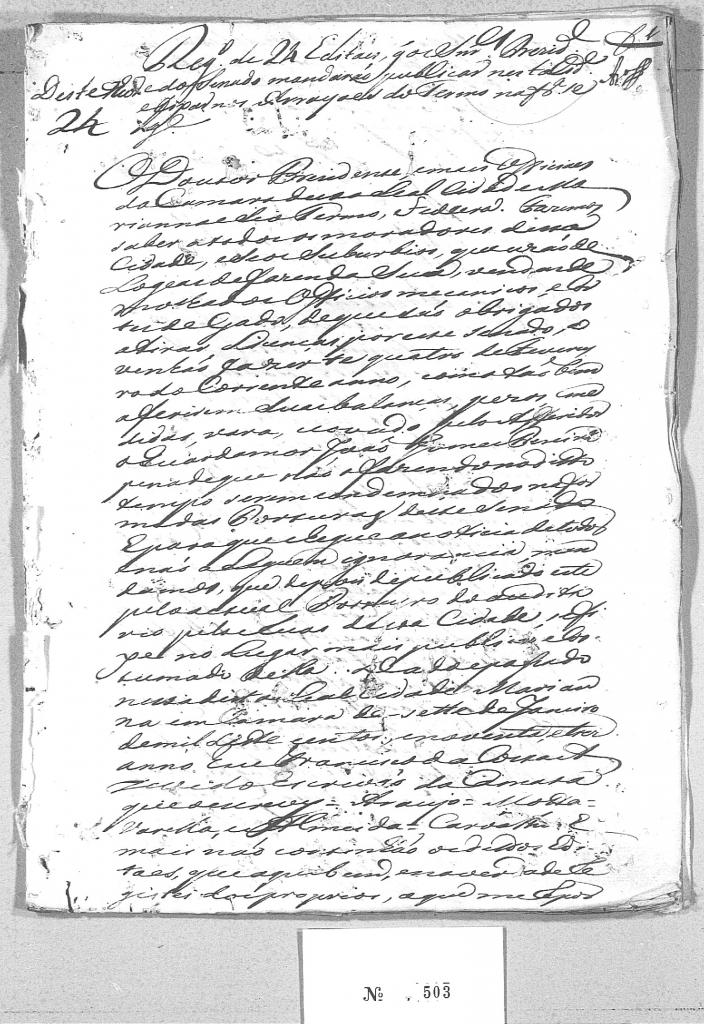 Reg.º de 24 Editais, q̃ os Snr.es Prezid.e
e do Senado mandarão publicar nesta Cid.e
e Arrayaes do Termo na fr.ª se
24
O Doutor Prezidente, e mais Officiaes
da Camara desta Leal Cidade Ma
rianna e Seo Termo, Fazemos
saber a todos os moradores dessa
Cidade, e seos Suburbios, que uzão de
Logeas de fazenda Seca, vendas de
molhados Officios mecanicos, e
de Gado, de que são obrigados
a tirar Licenças por este Senado, e
venhão fazer te quatro de Fevery
ro do Corrente anno, como tão bem
aferirem Suas balanças, pezos, me
didas, vara, covado, pelo Afferidor
o Guardamor João Gomes Pereira
pena de que não o fazendo no dito
tempo serem condemnados na for
ma das Posturas deste Senado
E para que chegue a noticia de todos
e não aleguem ignorancia man
damos, que depois de publicado este
pelo actual Porteiro do audito
rio pelas Ruas dessa Cidade, se fi
xe no Lugar mais publico e cos
tumado della. Dado e passado
nesta dita Leal Cidade Marian
na em Camara de sette de Janeiro
de mil Sette centos, e noventa, e tres
anno. Eu Francisco da Costa
Azevedo Escrivão da Camara
que o escrevy = Araujo = Motta =
Varella, e Almeida = Carvalho. E
mais não continhão os ditos Edi
taes, que aqui bem, e na verdade re
gistei dos proprios, a que me repor
Nº 503